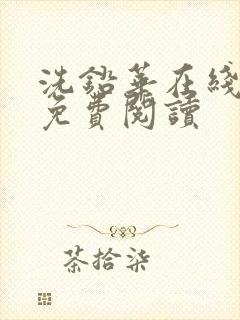 洗鉛華在綫
免費閱讀
茶拾柒